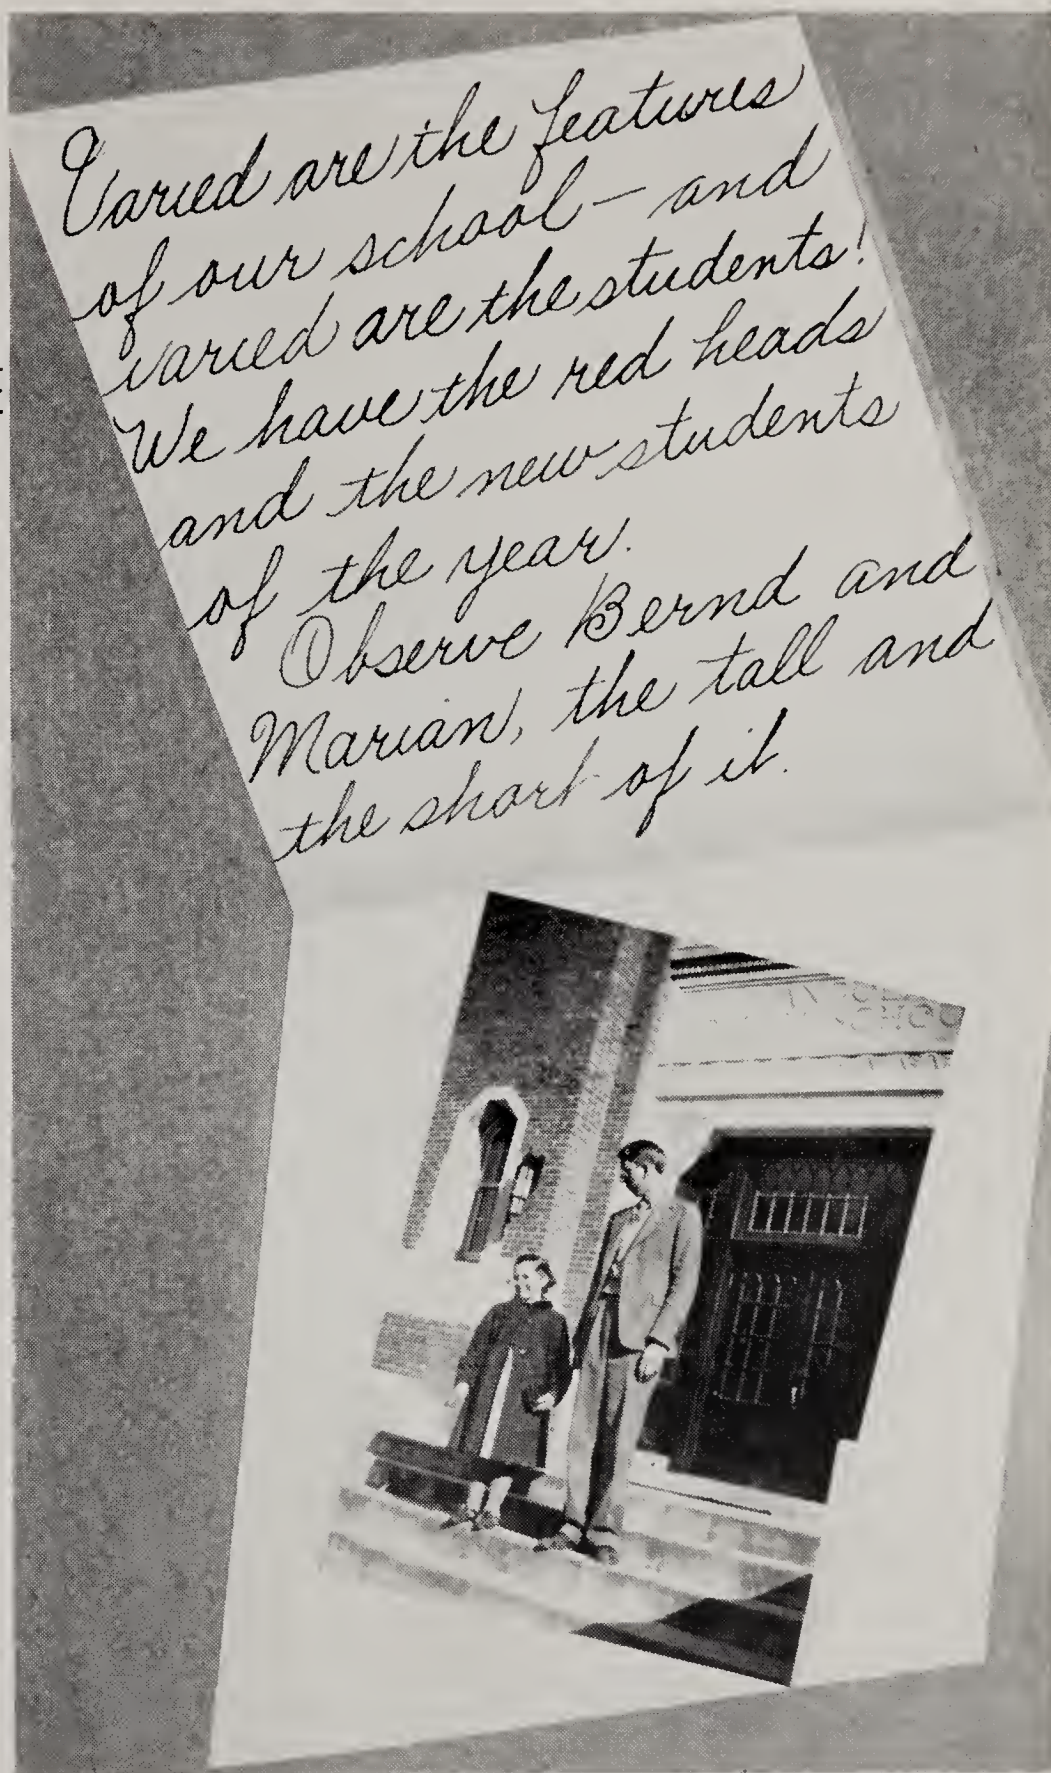 Varied are the features
of our school — and
varied are the students!
We have the red heads
and the new students
of the year.
Observe Bernd and
Marian, the tall and
the short of it.